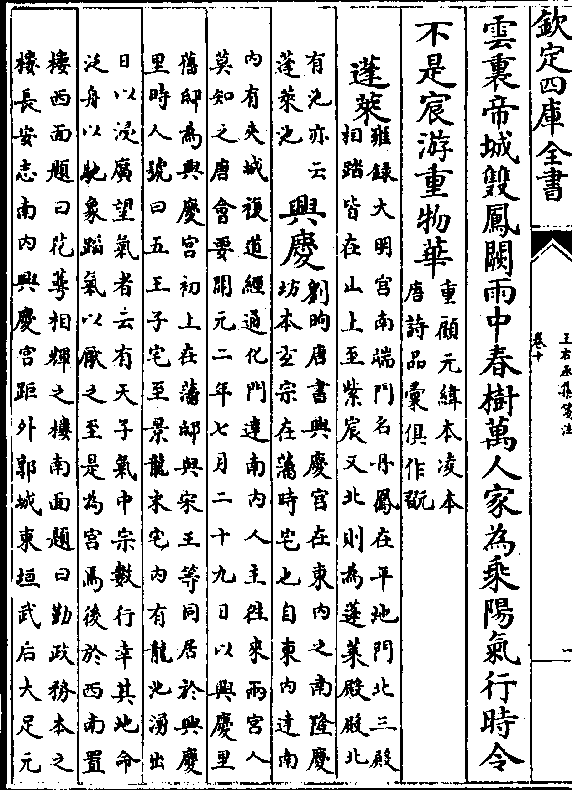 欽定四庫全書
王右丞集箋注
卷十
一
雲裏帝城雙鳳闕雨中春樹萬人家為乘陽氣行時令
不是宸游重物華
重顧元緯本凌本
唐詩品彚俱作翫
蓬萊
雍録大明宫南端門名丹鳳在平地門北三殿
相踏皆在山上至紫宸又北則為蓬萊殿殿北
有池亦云
蓬萊池
興慶
劉昫唐書興慶宫在東内之南隆慶
坊本玄宗在藩時宅也自東内達南
内有夾城複道經通化門達南内人主往來兩宫人
莫知之唐會要開元二年七月二十九日以興慶里
舊邸為興慶宫初上在藩邸與宋王等同居於興慶
里時人號曰五王子宅至景龍末宅内有龍池湧出
日以浸廣望氣者云有天子氣中宗數行幸其地命
泛舟以馳象蹈氣以厭之至是為宫焉後於西南置
樓西面題曰花萼相輝之樓南面題曰勤政務本之
樓長安志南内興慶宫距外郭城東垣武后大足元